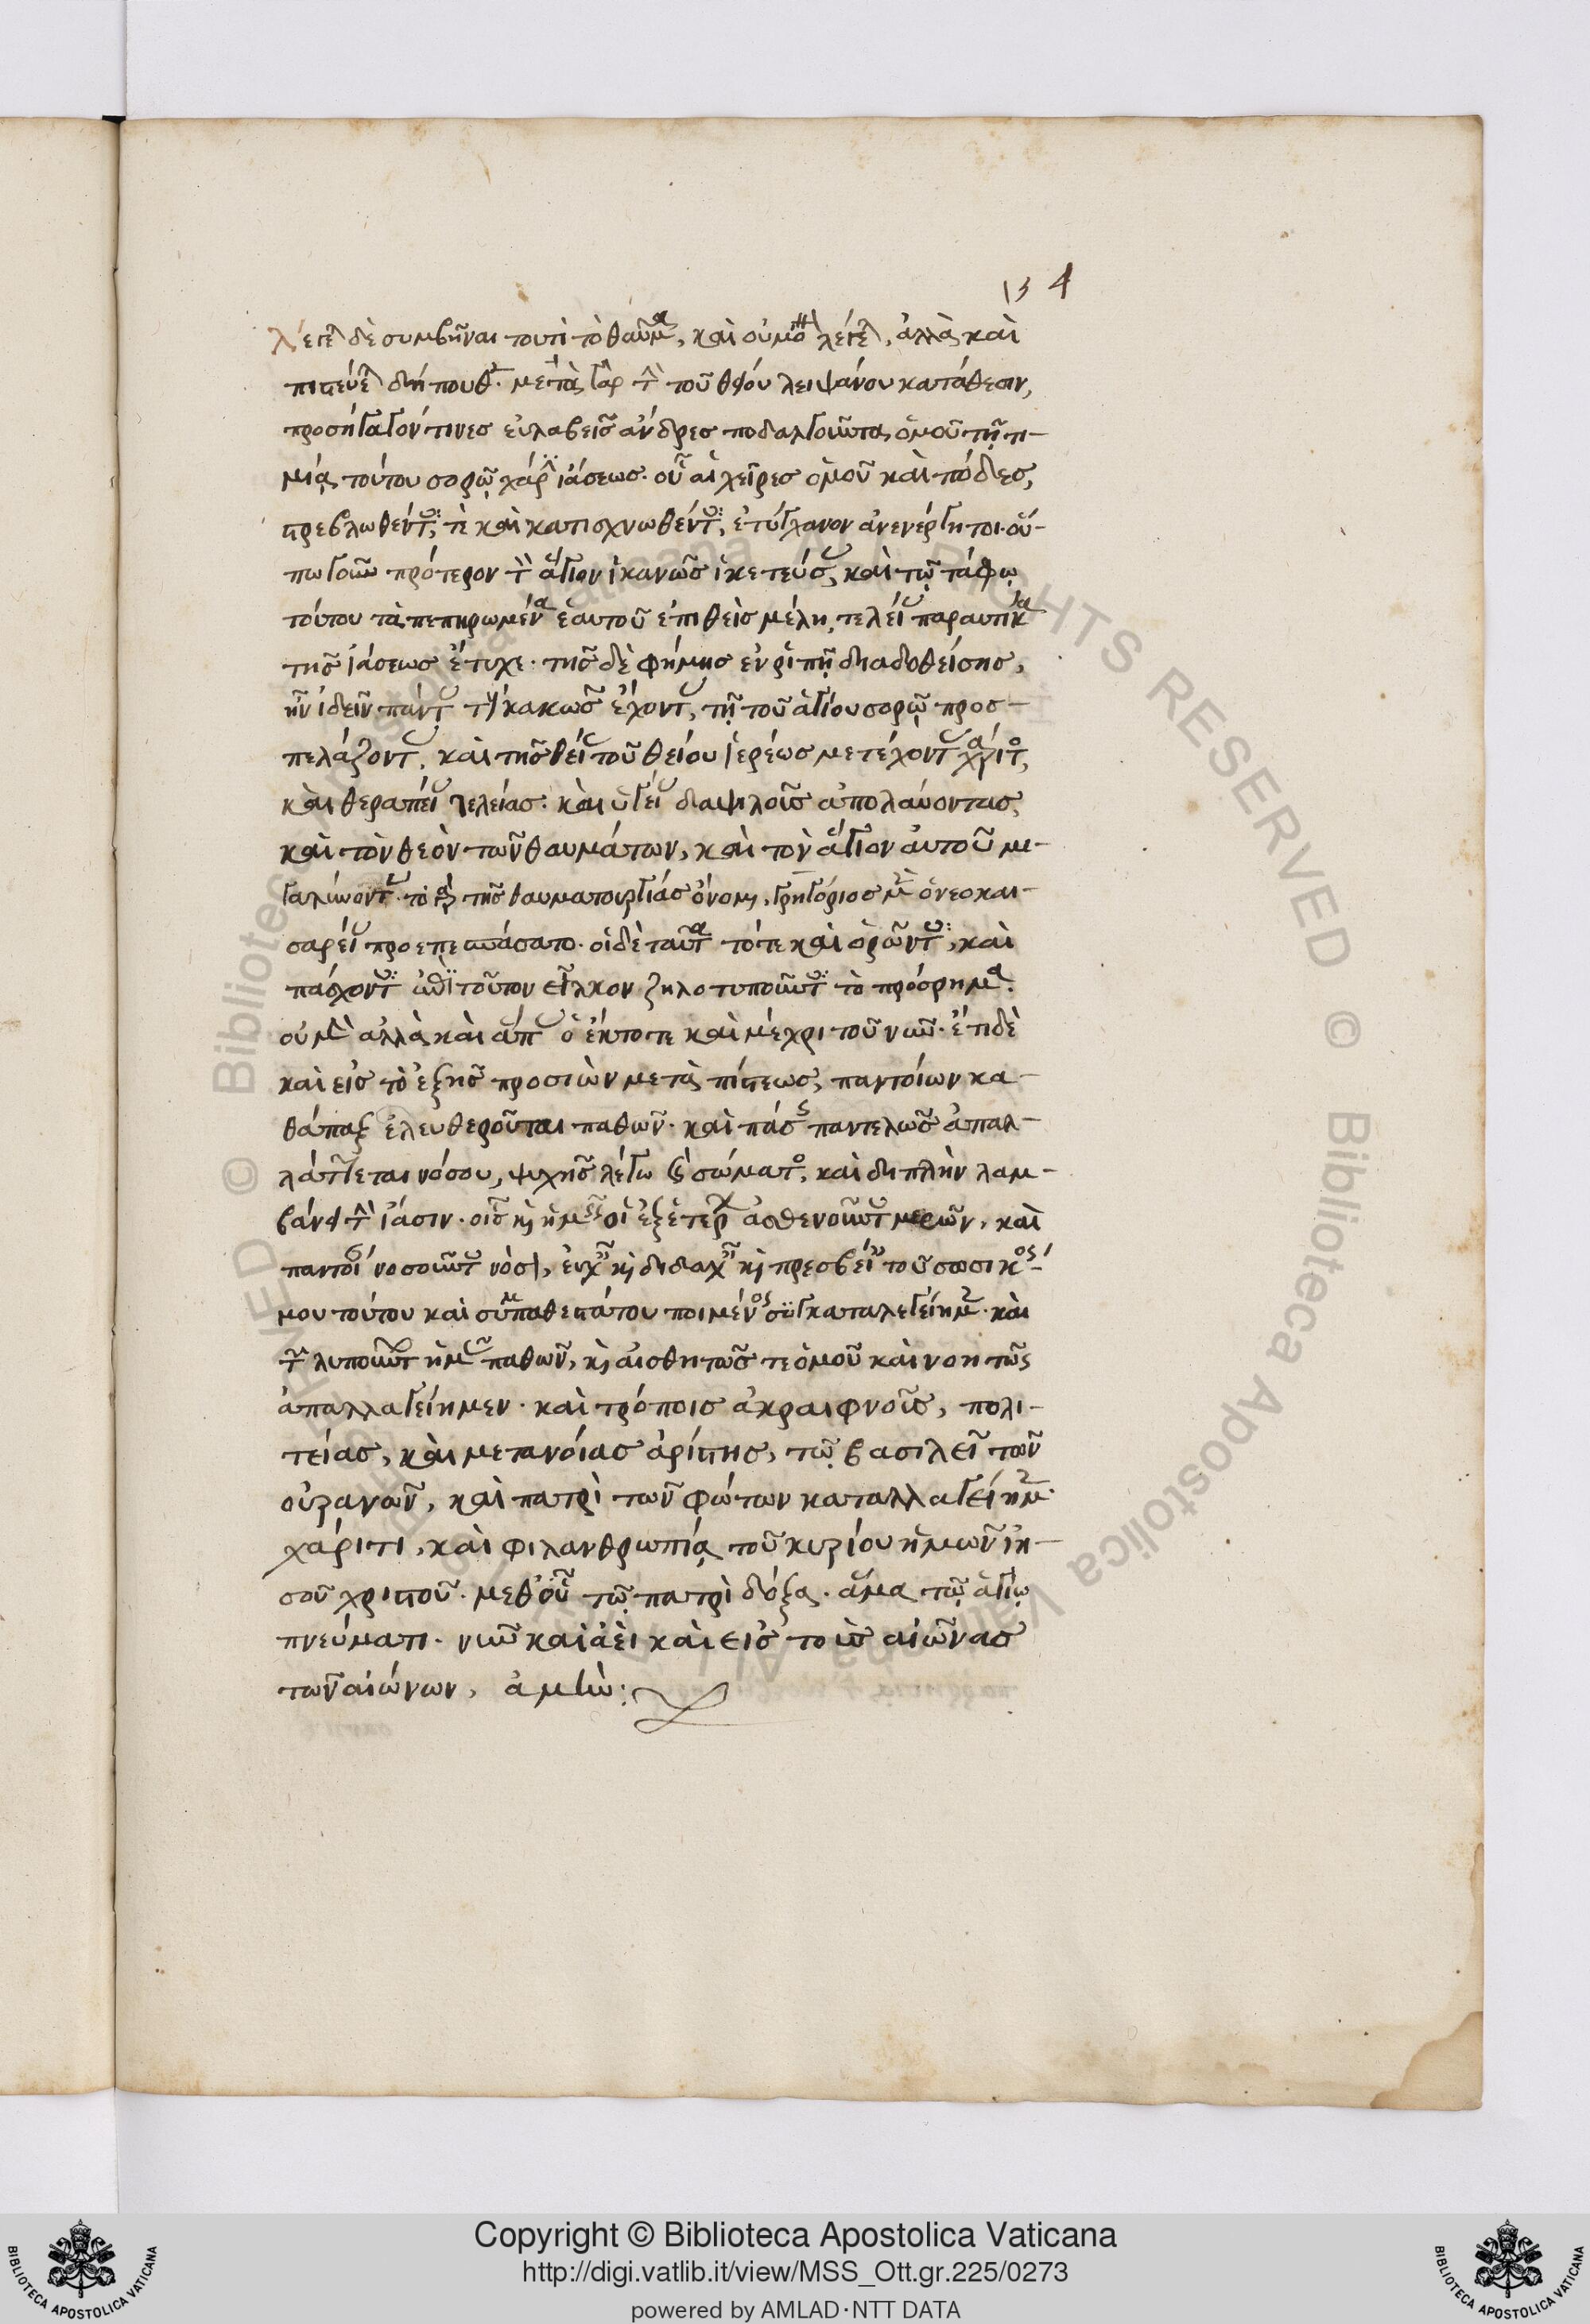 134
λέγεται δὲ συμβῆναι τουτὶ τὸ θαῦμα, καὶ οὐ μόνον λέγεται, ἀλλὰ καὶ
πιστεύεται δήπουθεν. μετὰ γὰρ τὴν τοῦ θείου λειψάνου κατάθεσιν,
προσήγαγόν τινες εὐλαβεῖς ἄνδρες ποδαλγοῦντα, ὁμοῦ τῇ τι-
μίᾳ τούτου σορῷ χάριν ἰάσεως. οὗ αἱ χεῖρες ὁμοῦ καὶ πόδες,
στρεβλωθέντες τὲ καὶ κατισχνωθέντες, ἐτύγχανον ἀνενέργητοι. οὕ-
πρότερον τὸν ἅγιον ἱκανῶς ἱκετεύσας, καὶ τῷ τάφῳ
τούτου τὰ πεπηρωμένα ἑαυτοῦ ἐπιθεὶς μέλη, τελείας παραυτίκα
τῆς ἰάσεως ἔτυχε. τῆς δὲ φήμης ἐν ῥιπῇ διαδοθείσης,
ἦν ἰδεῖν πάντας τοὺς κακῶς ἔχοντας, τῇ τοῦ ἁγίου σορῷ προσ-
πελάζοντας, καὶ τῆς θείας τοῦ θείου ἱερέως μετέχοντας χάριτος,
καὶ θεραπείας τελείας. καὶ ὑγείας δαψιλοῖς ἀπολαύοντας,
καὶ τὸν θεὸν τῶν θαυμάτων, καὶ τὸν ἅγιον αὐτοῦ με-
γαλύνοντας. τῆς θαυματουργίας ὄνομα, γρηγόριος μὲν ὁ νεοκαι-
σαρείας προεπεσπάσατο. οἱ δὲ ταῦτα τότε καὶ ὁρῶντες, καὶ
πάσχοντες τοῦτον εἷλκον ζηλοτυποῦντες τὸ πρόσρημα.
οὐ μὴν ἀλλὰ καὶ ἅπας ὁ ἔκτοτε καὶ μέχρι τοῦ νῦν. ἔτι δὲ
καὶ εἰς τὸ ἑξῆς προσιὼν μετὰ πίστεως, παντοίων κα-
θάπαξ ἐλευθεροῦται παθῶν. καὶ πάσης παντελῶς ἀπαλ-
λάττεται νόσου, ψυχῆς λέγω καὶ σώματος, καὶ διπλὴν λαμ-
βάνει τὴν ἴασιν. οἷς καὶ ἡμεῖς οἱ ἐξ ἑτέρων ἀσθενούντων μερῶν, καὶ
παντοίας νοσοῦντες νόσους, εὐχαῖς καὶ διδαχαῖς καὶ πρεσβείαις τοῦ σωσικός-
μου τούτου καὶ συμπαθεστάτου ποιμένος συγκαταλεγείημεν. καὶ
τῶν λυπούντων ἡμᾶς παθῶν, καὶ αἰσθητῶς τε ὁμοῦ καὶ νοητῶς
ἀπαλλαγείημεν. καὶ τρόποις ἀκραιφνοῖς, πολι-
τείας, καὶ μετανοίας ἀρίστης, τῷ βασιλεῖ τῶν
οὐρανῶν, καὶ πατρὶ τῶν φώτων καταλλαγείημεν.
χάριτι, καὶ φιλανθρωπίᾳ τοῦ κυρίου ἡμῶν ἰη-
σοῦ χριστοῦ. μεθ' οὗ τῷ πατρὶ δόξα. ἅμα τῷ ἁγίῳ
πνεύματι. νῦν καὶ ἀεὶ καὶ εἰς τοὺς αἰῶνας
τῶν αἰώνων, ἀμήν:
Copyright © Biblioteca Apostolica Vaticana
http://digi.vatlib.it/view/MSS_Ott.gr.225/0273
powered by AMLAD·NTT DATA